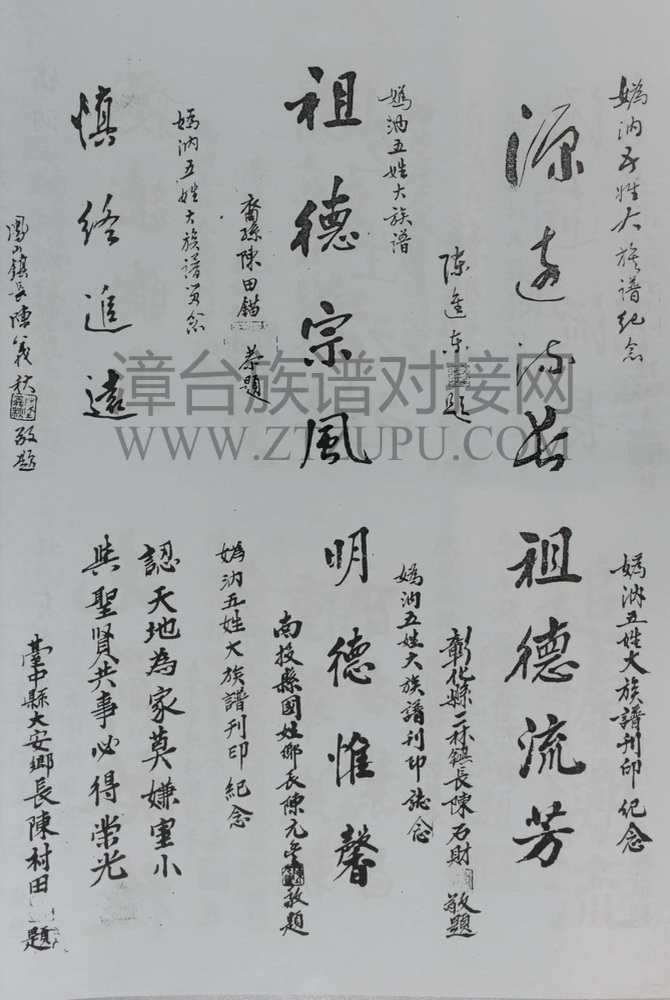 媯汭五姓大族譜纪念
源遠流長
陳進東
題
媯汭五姓大族譜
祖德宗風
裔孫陳田錨
恭題
媯汭五姓大族譜留念
慎終追遠
鳳山鎮長陳義秋
敬題
媯汭五姓大族譜刊印纪念
祖德流芳
彰化縣二林鎮長陳石財
敬題
媯汭五姓大族譜刊印誌念
明德惟馨
南投縣國姓鄉長陳元
敬題
媯汭五姓大族譜刊印紀念
認天地為家莫嫌室小
與聖賢共事必得榮光
臺中縣大安鄉長陳村田
題
漳台族谱对接网
WWW.ZTZUPU.COM